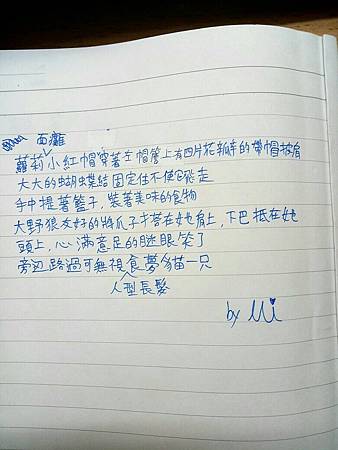 面癱
蘿莉小紅帽穿著在帽簷上有四片花瓣的帶帽披肩
大大的蝴蝶結固定住不使它飛走
手中提著籃子，裝著美味的食物
大野狼友好的將爪子搭在她肩上，下巴抵在她
頭上，心滿意足的瞇眼笑了
旁边路過可無視食夢貓一只
人型長髮
by Mi